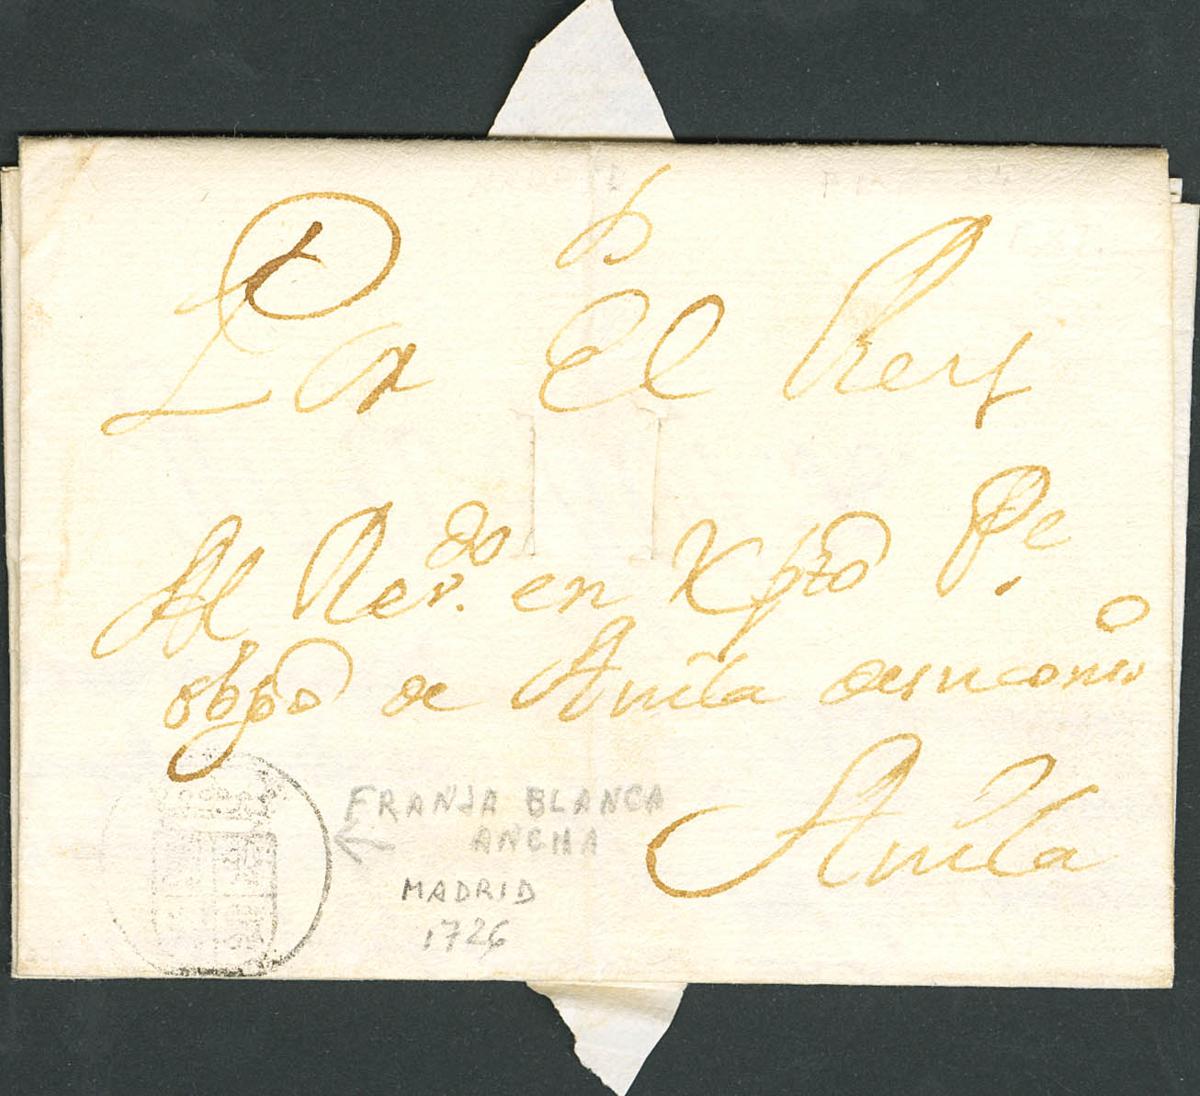 Por El Rey
Al Rev.do en Xpto Pe
obpo de Avila de su cons.o
Avila
FRANJA BLANCA
ANCHA
MADRID
1726